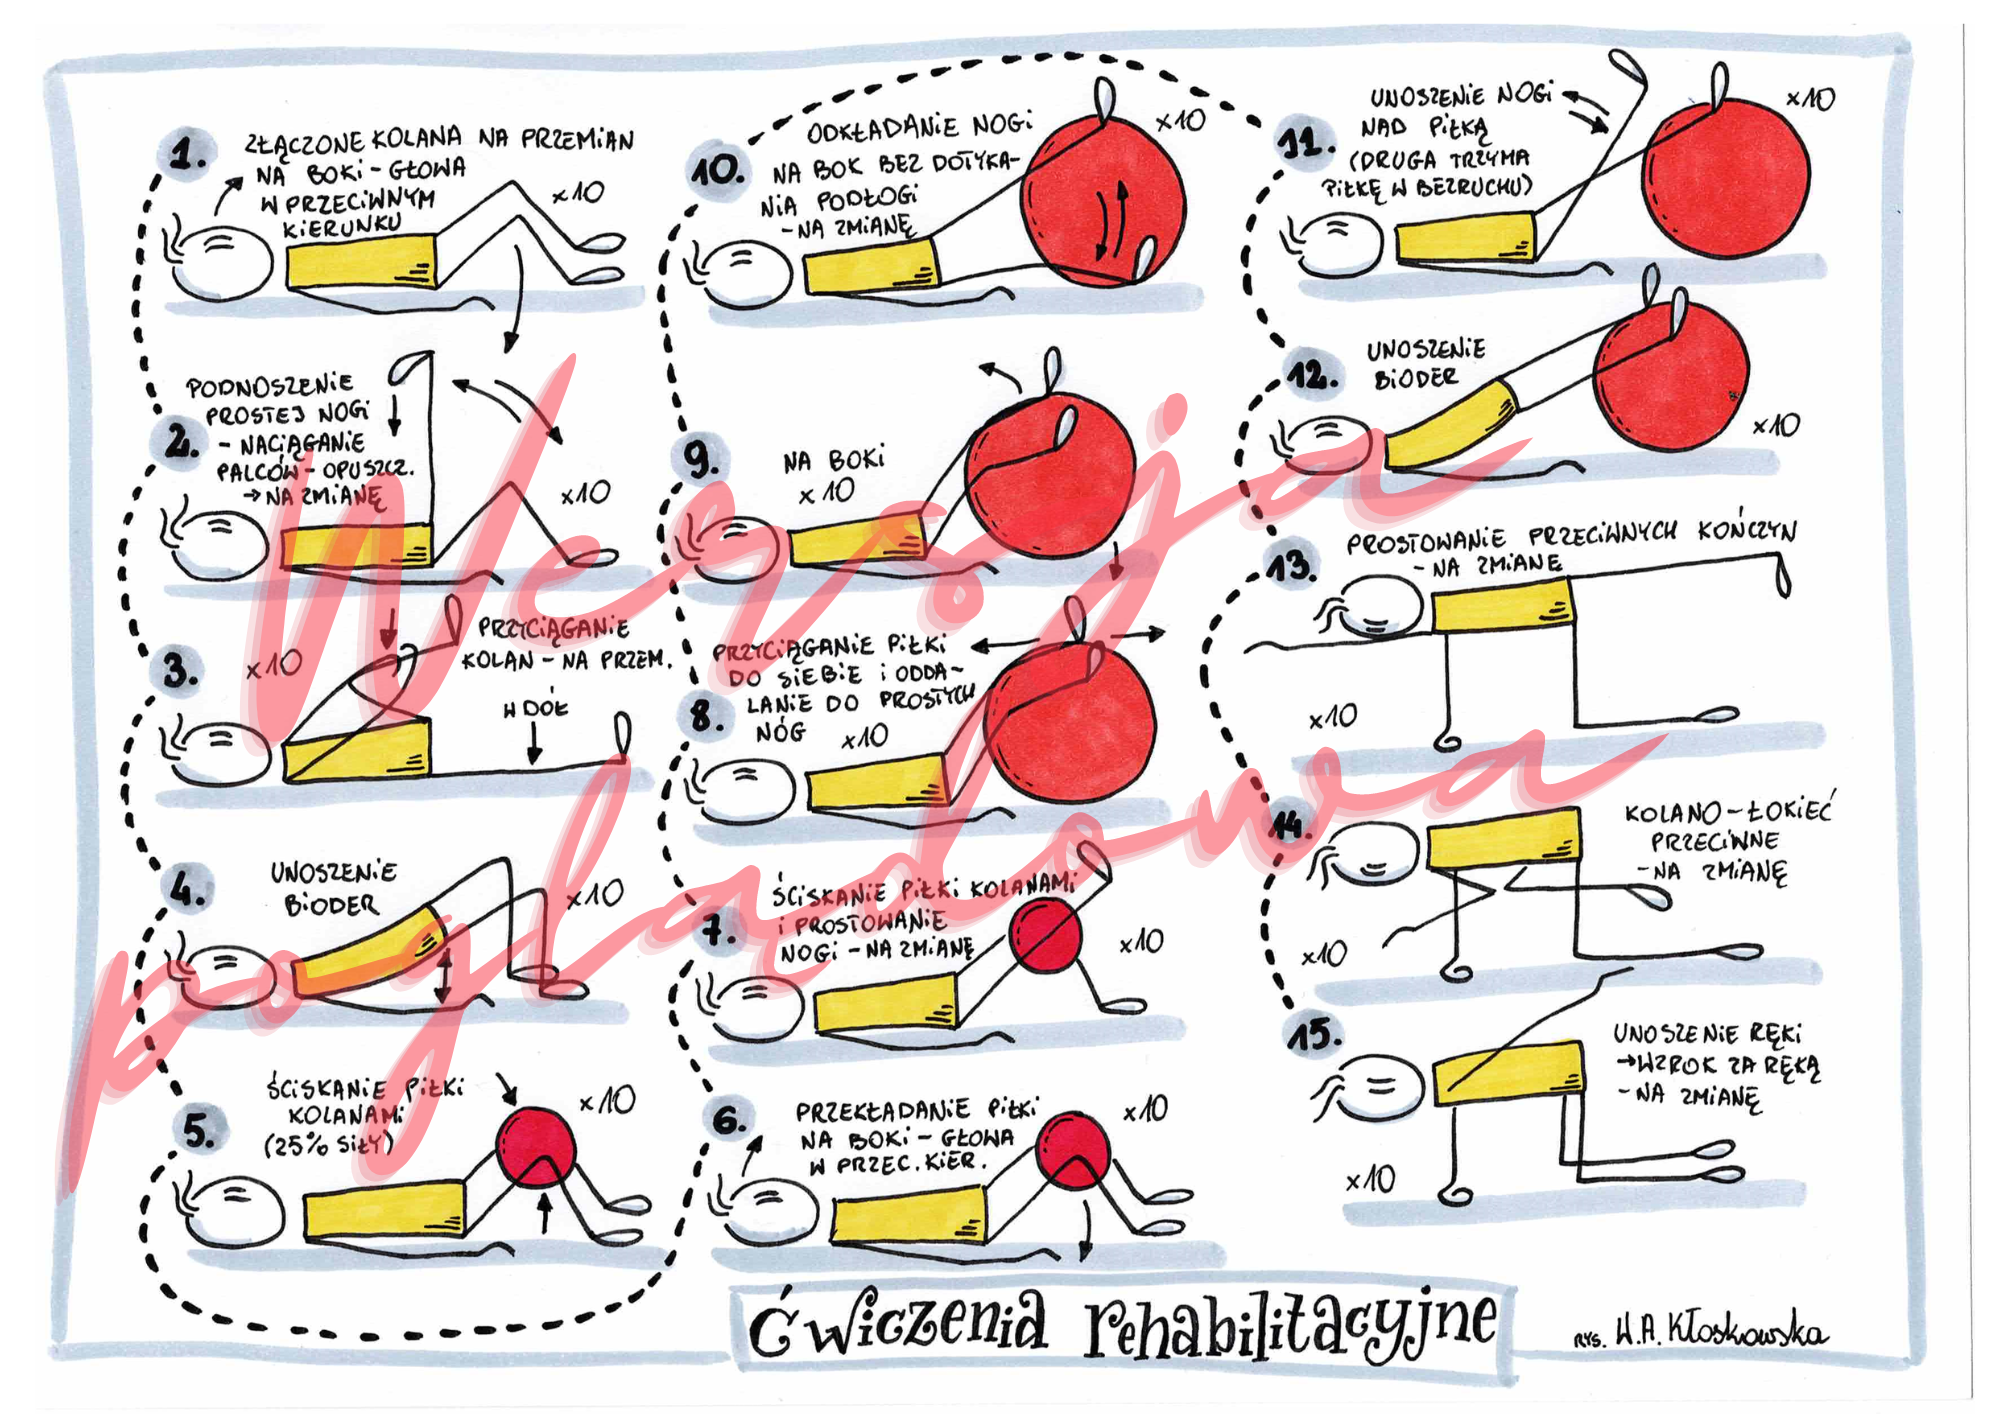 1.
ZŁĄCZONE KOLANA NA PRZEMIAN
NA BOKI - GŁOWA
W PRZECIWNYM
KIERUNKU
x10
2.
PODNOSZENIE
PROSTEJ NOGI
- NACIĄGANIE
PALCÓW - OPUSZCZ.
→ NA ZMIANĘ
x10
3.
x10
PRZYCIĄGANIE
KOLAN - NA PRZEM.
W DÓŁ
4.
UNOSZENIE
BIODER
x10
5.
ŚCISKANIE PIŁKI
KOLANAMI
(25% SIŁY)
x10
6.
PRZEKŁADANIE PIŁKI
NA BOKI - GŁOWA
W PRZEC. KIER.
x10
7.
ŚCISKANIE PIŁKI KOLANAMI
I PROSTOWANIE
NOGI - NA ZMIANĘ
x10
8.
PRZYCIĄGANIE PIŁKI
DO SIEBIE I ODDA-
LANIE DO PROSTYCH
NÓG
x10
9.
NA BOKI
x10
10.
ODKŁADANIE NOGI
NA BOK BEZ DOTYKA-
NIA PODŁOGI
- NA ZMIANĘ
x10
11.
UNOSZENIE NOGI
NAD PIŁKĄ
(DRUGA TRZYMA
PIŁKĘ W BEZRUCHU)
x10
12.
UNOSZENIE
BIODER
x10
13.
PROSTOWANIE PRZECIWNYCH KOŃCZYN
- NA ZMIANĘ
x10
14.
KOLANO - ŁOKIEĆ
PRZECIWNE
- NA ZMIANĘ
x10
15.
UNOSZENIE RĘKI
→ WZROK ZA RĘKĄ
- NA ZMIANĘ
x10
Wersja
poglądowa
Ćwiczenia rehabilitacyjne
RYS. W.A. Kłoskowska